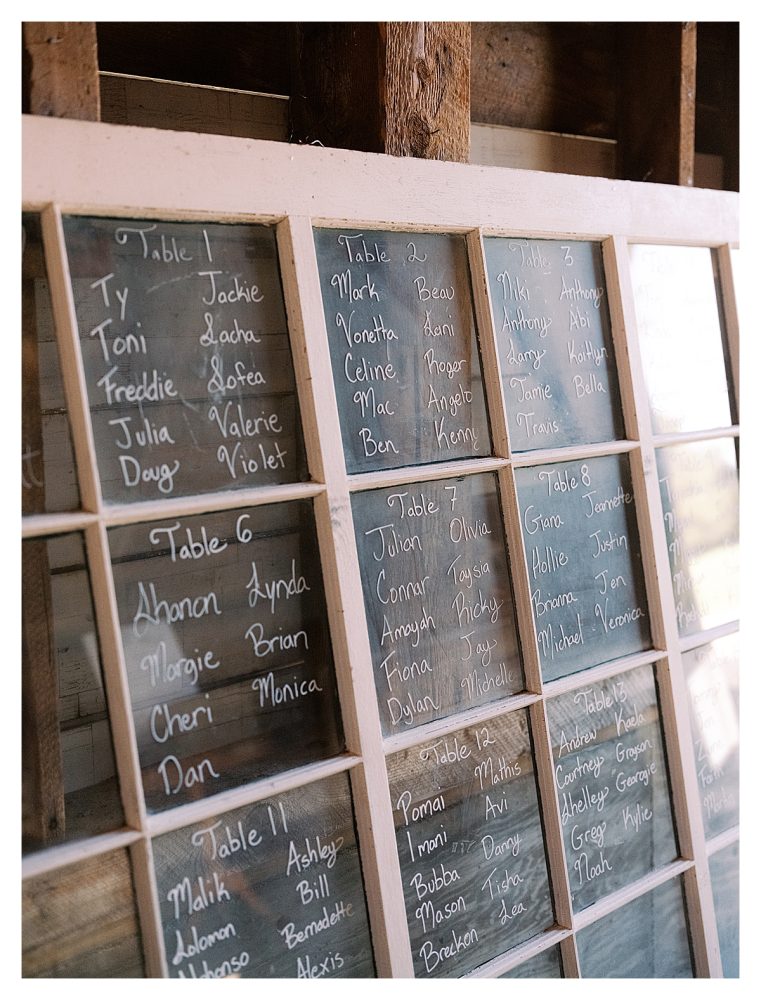 Table 1
Ty Jackie
Toni Sacha
Freddie Sofea
Julia Valerie
Doug Violet
Table 2
Mark Beau
Vonetta Lani
Celine Roger
Mac Angelo
Ben Kenny
Table 3
Niki Anthony
Anthony Abi
Larry Kaitlyn
Jamie Bella
Travis
Table 6
Shanon Lynda
Margie Brian
Cheri Monica
Dan
Table 7
Julian Olivia
Connar Taysia
Amayah Ricky
Fiona Jay
Dylan Michelle
Table 8
Giana Jeannette
Hollie Justin
Brianna Jen
Michael Veronica
Table 11
Malik Ashley
Solomon Bill
Alphonso Bernadette
Alexis
Table 12
Pomai Mathis
Imani Avi
Bubba Danny
Mason Tisha
Breckon Lea
Table 13
Andrew Kaela
Courtney Grayson
Shelley Georgie
Greg Kylie
Noah